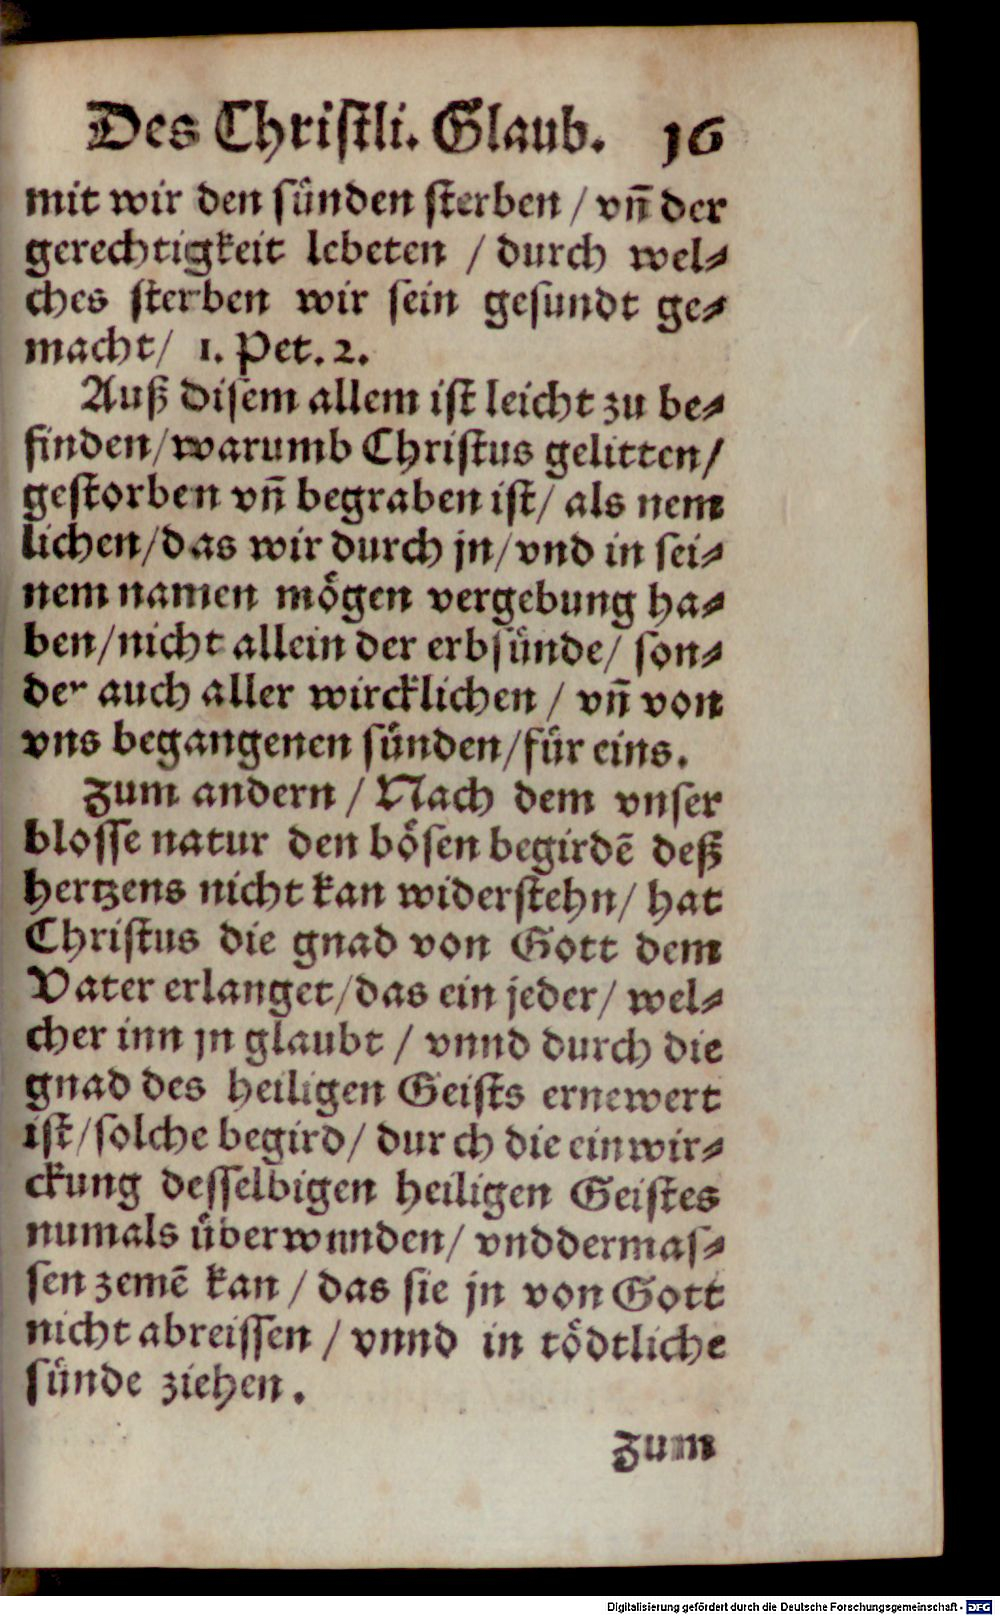 Des Christli. Glaub. 16
mit wir den sünden sterben / vñ der
gerechtigkeit lebeten / durch wel⸗
ches sterben wir sein gesundt ge⸗
macht/ 1. Pet. 2.
Auß disem allem ist leicht zu be⸗
finden/warumb Christus gelitten/
gestorben vñ begraben ist/ als nem
lichen/das wir durch jn/vnd in sei⸗
nem namen mögen vergebung ha⸗
ben/nicht allein der erbsünde/ son⸗
der auch aller wircklichen / vñ von
vns begangenen sünden/für eins.
Zum andern / Nach dem vnser
blosse natur den bösen begirdẽ deß
hertzens nicht kan widerstehn/ hat
Christus die gnad von Gott dem
Vater erlanget/das ein jeder/ wel⸗
cher inn jn glaubt / vnnd durch die
gnad des heiligen Geists ernewert
ist/solche begird/ dur ch die einwir⸗
ckung desselbigen heiligen Geistes
numals überwunden/ vnddermas⸗
sen zemẽ kan / das sie jn von Gott
nicht abreissen / vnnd in tödtliche
sünde ziehen.
Zum
Digitalisierung gefördert durch die Deutsche Forschungsgemeinschaft - DFG